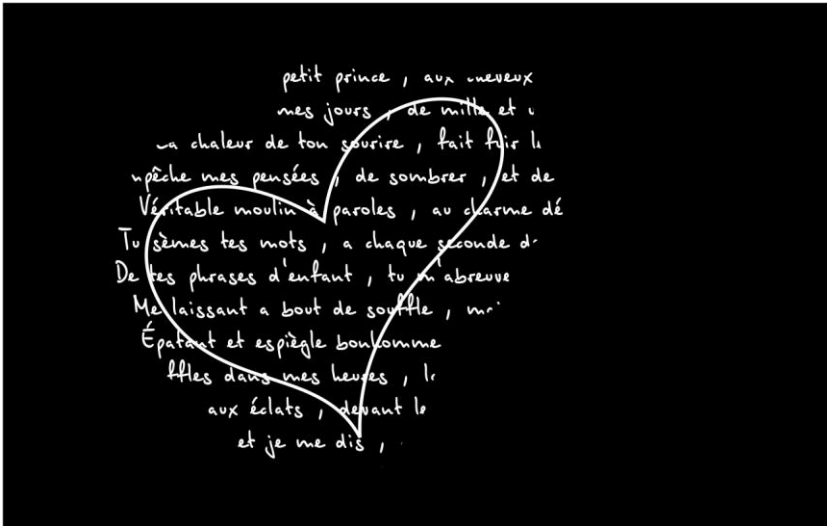 petit prince , aux
mes jours , de mille et
chaleur de ton sourire , fait fuir
mes pensées , de sombrer , et de
Véritable moulin à paroles , au charme
Tu sèmes tes mots , a chaque seconde
De tes phrases d'enfant , tu m'abreuve
Me laissant a bout de souffle ,
Épatant et espiègle bonhomme
dans mes heures ,
aux éclats , devant
et je me dis ,